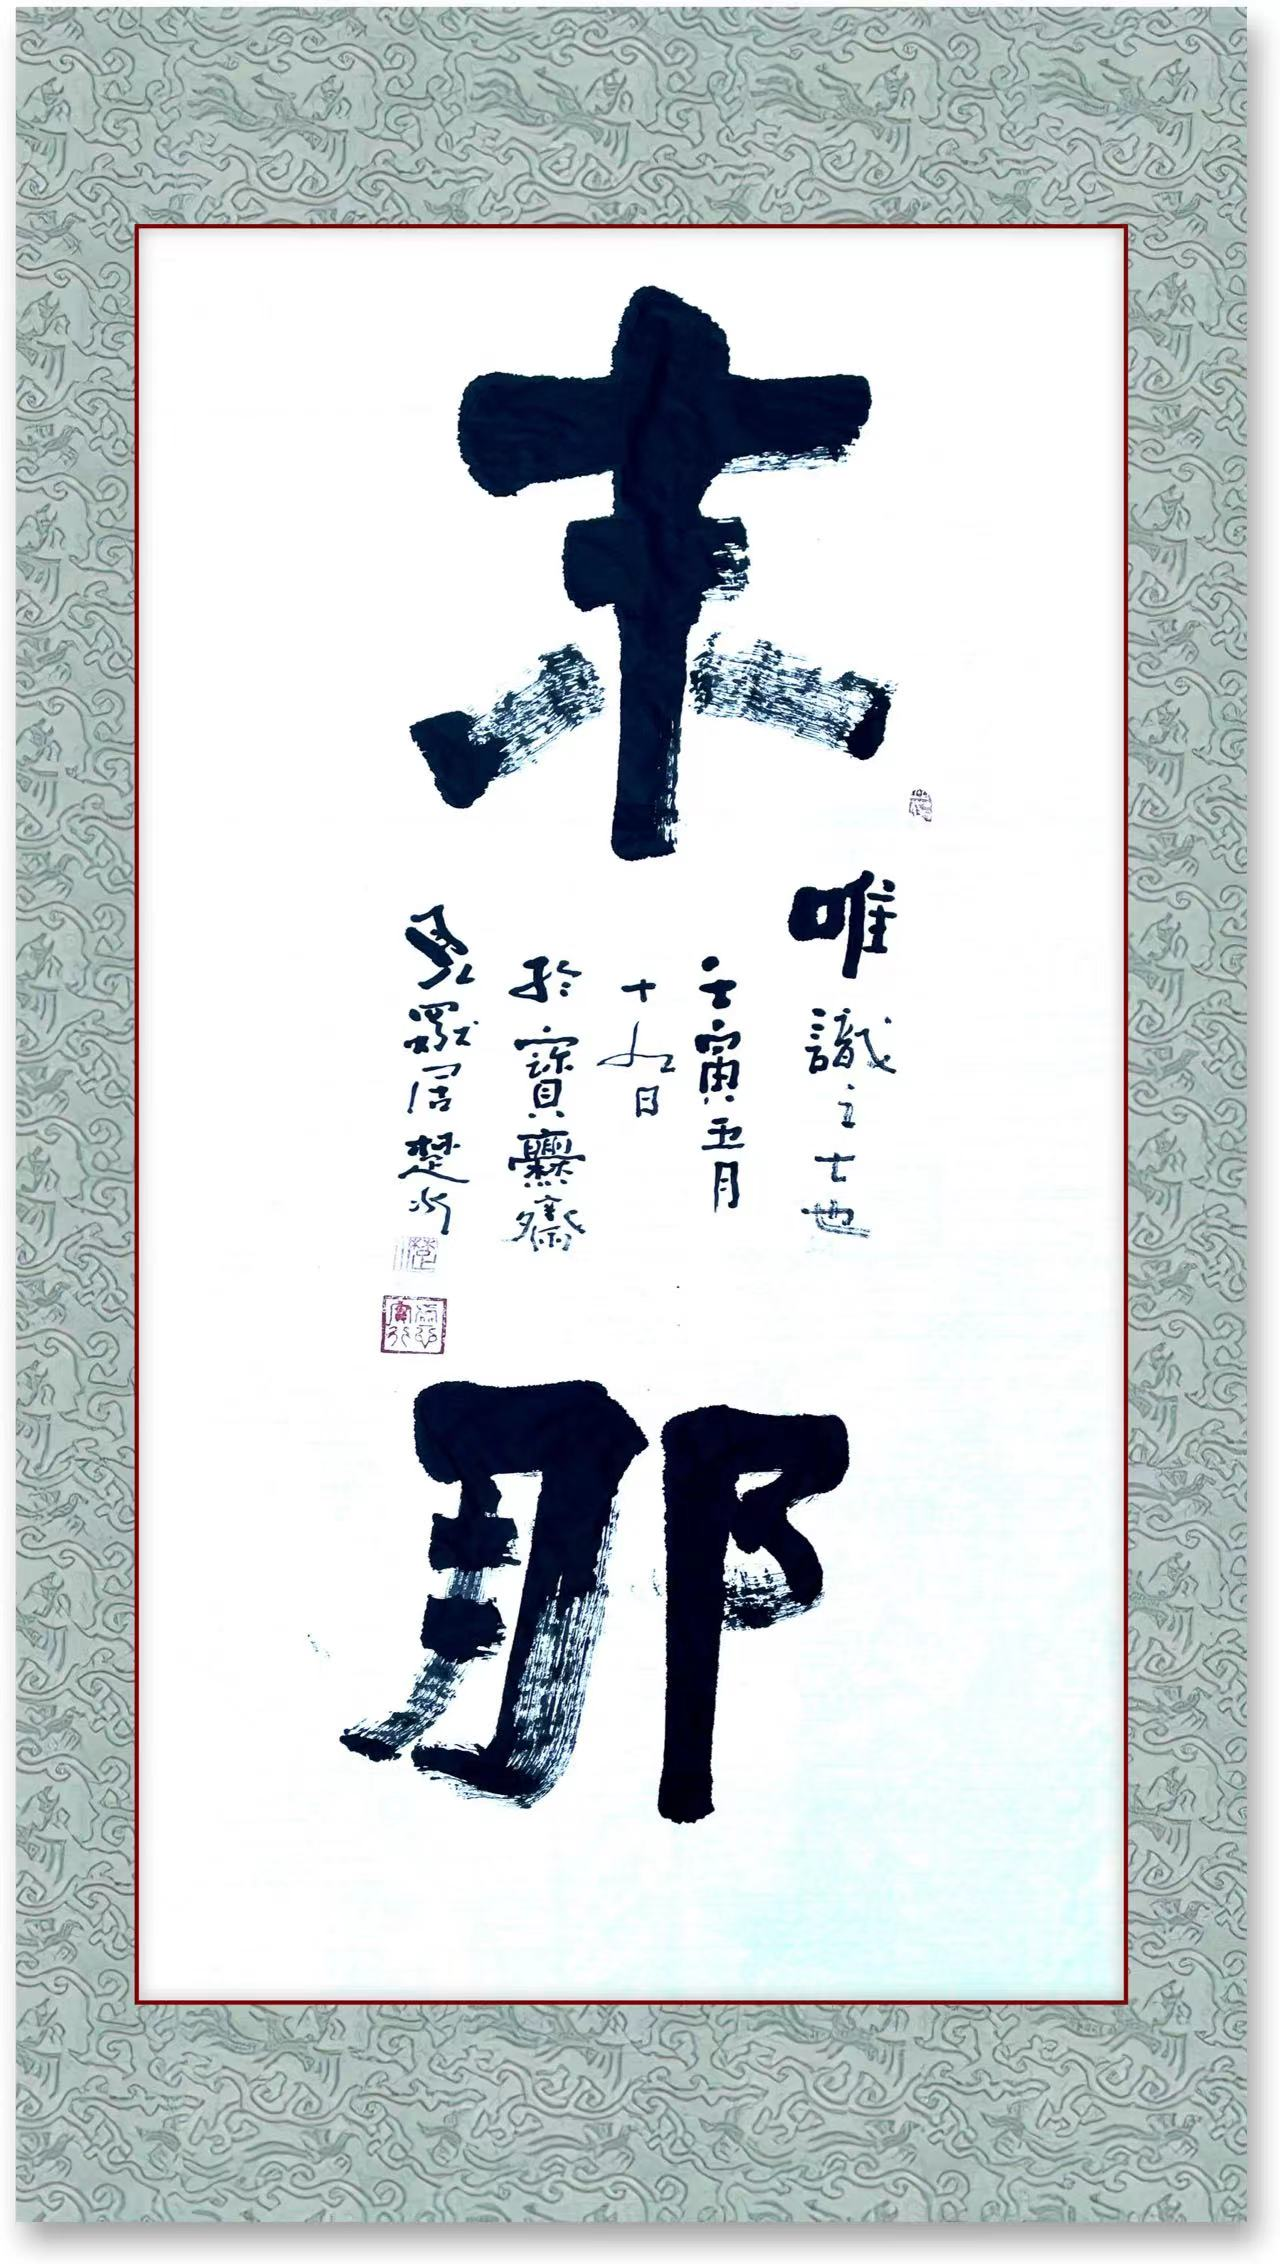 末那
唯識之七也
壬寅五月
十九日
於寶爨齋
居楚水